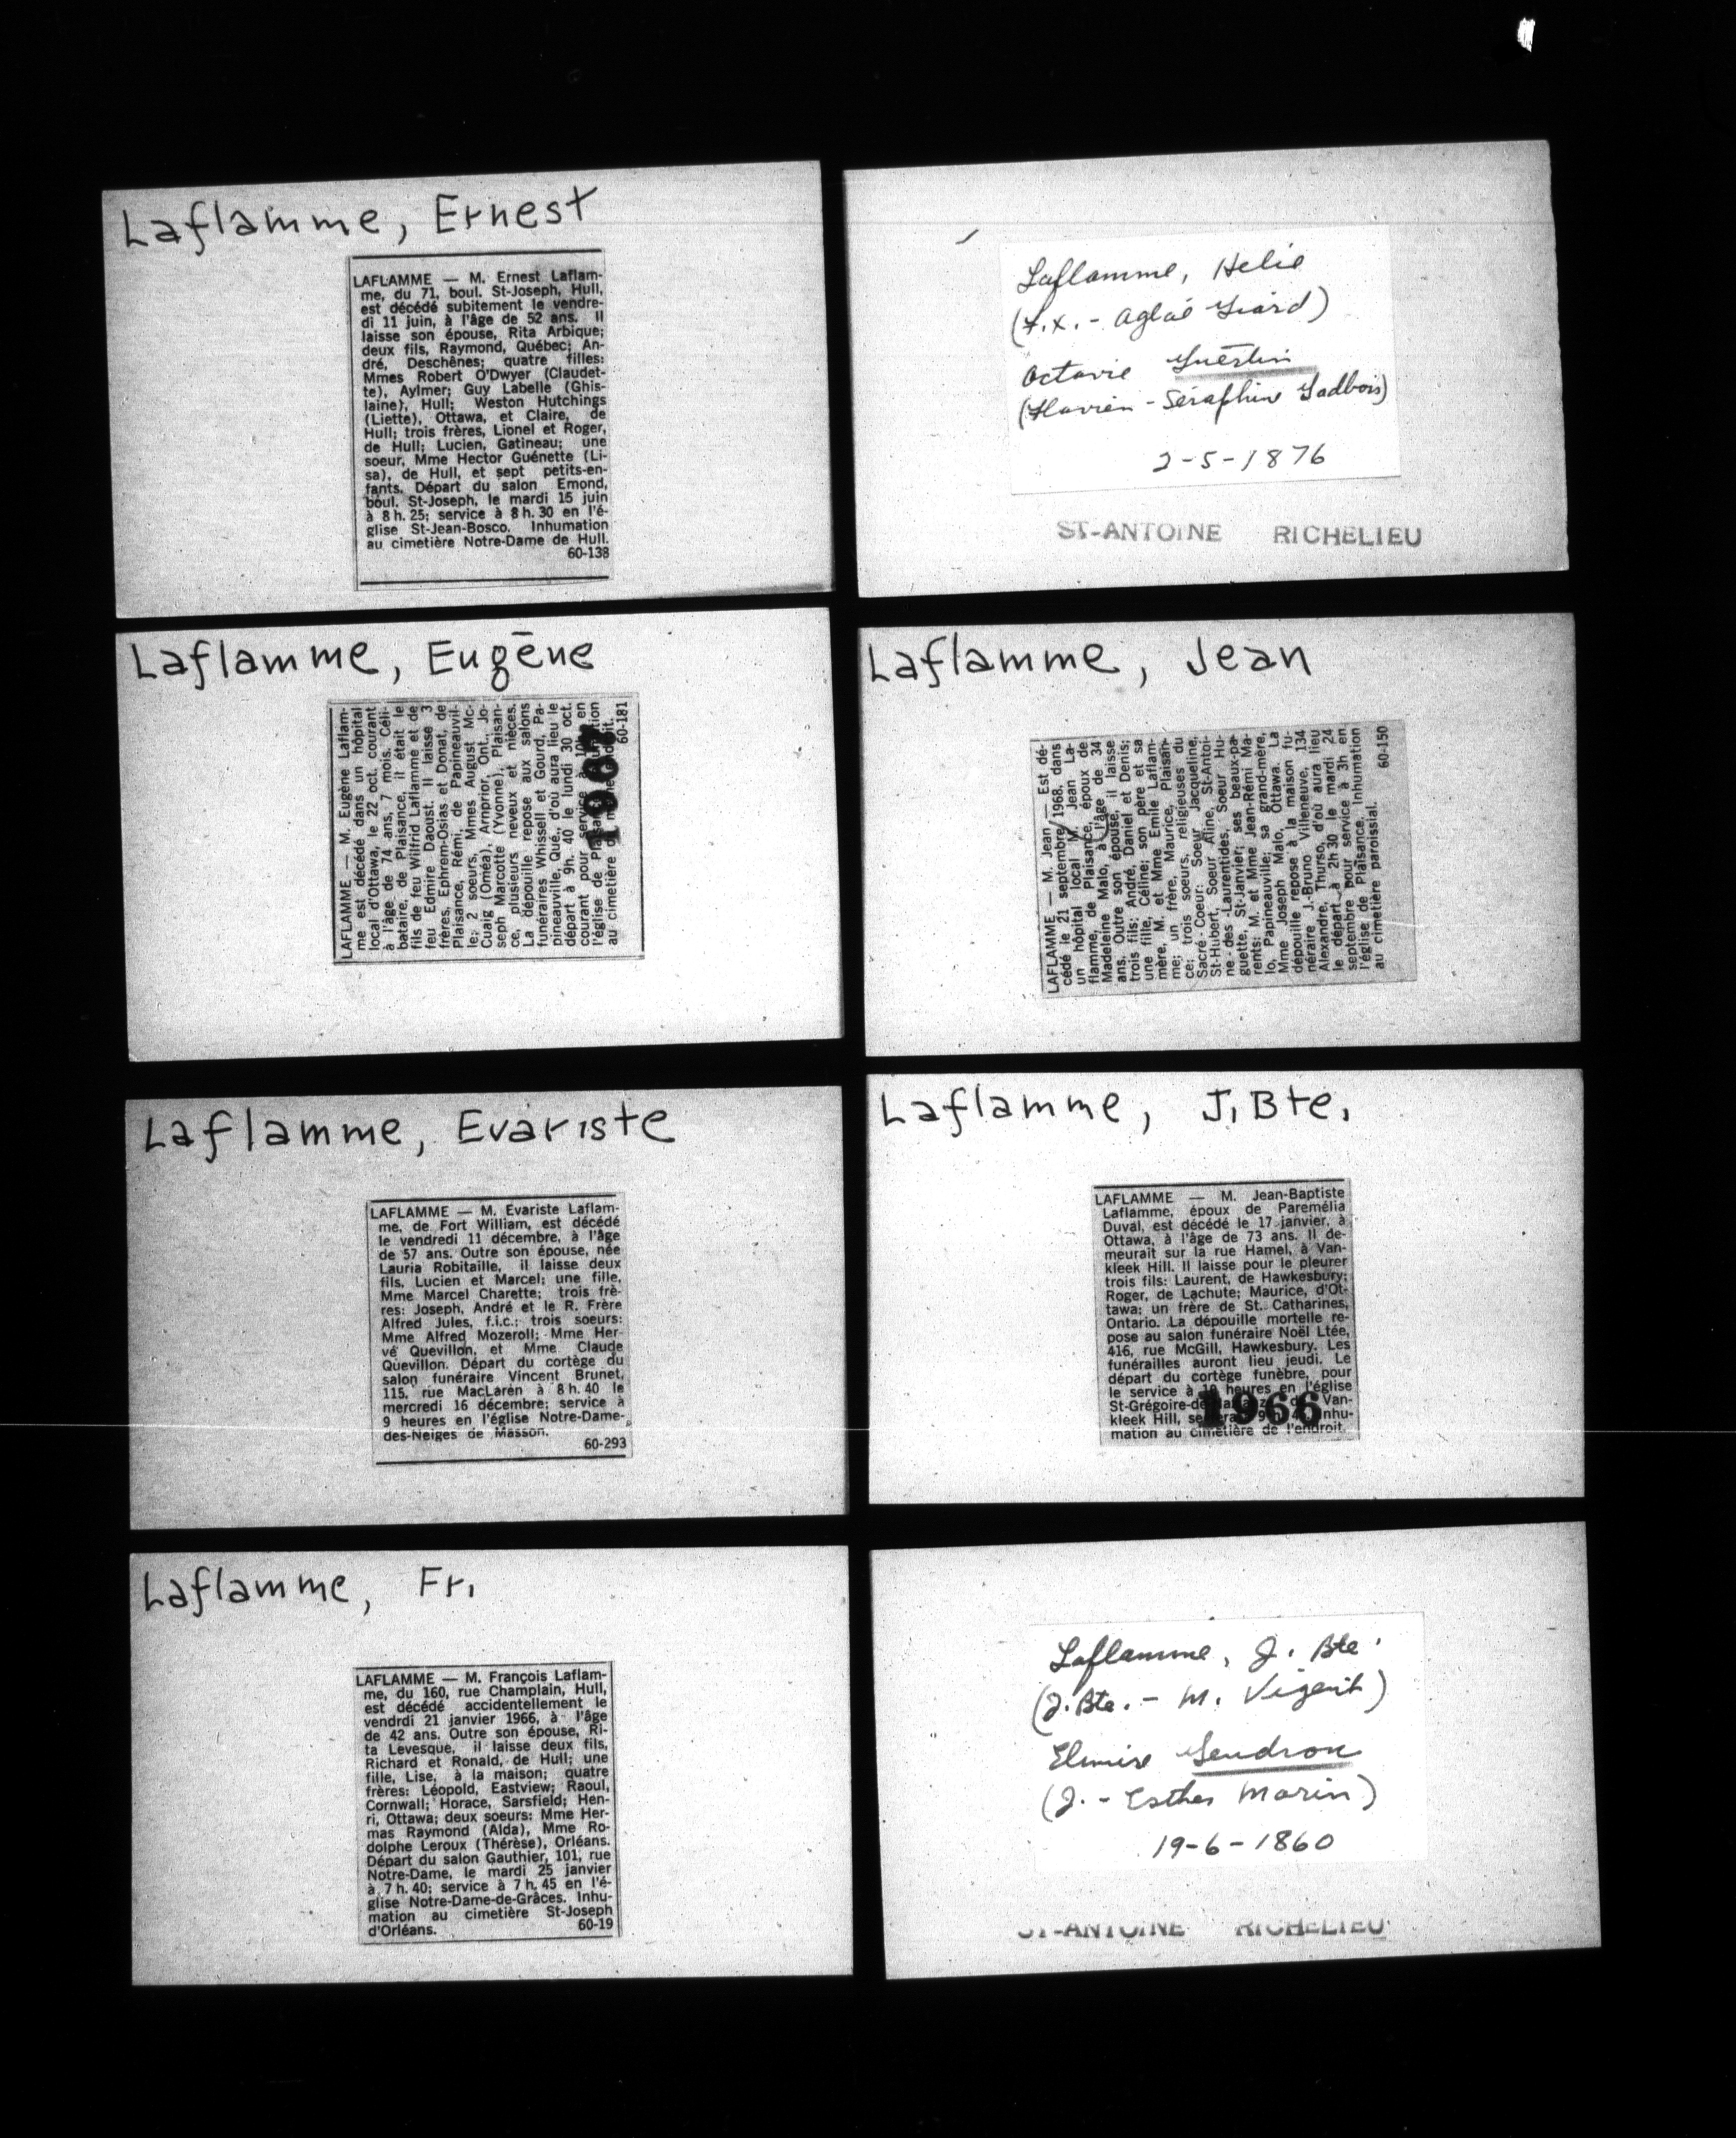 Laflamme, Ernest
LAFLAMME — M. Ernest Laflam-
me, du 71, boul. St-Joseph, Hull,
est décédé subitement le vendre-
di 11 juin, à l'âge de 52 ans. Il
laisse son épouse, Rita Arbique;
deux fils, Raymond, Québec; An-
dré, Deschênes; quatre filles:
Mmes Robert O'Dwyer (Claudet-
te), Aylmer; Guy Labelle (Ghis-
laine), Hull; Weston Hutchings
(Liette), Ottawa, et Claire, de
Hull; trois frères, Lionel et Roger,
de Hull; Lucien, Gatineau; une
soeur, Mme Hector Guénette (Li-
sa), de Hull, et sept petits-en-
fants. Départ du salon Emond,
boul. St-Joseph, le mardi 15 juin
à 8 h. 25; service à 8 h. 30 en l'é-
glise St-Jean-Bosco. Inhumation
au cimetière Notre-Dame de Hull.
60-138
Laflamme, Helie
(F.X. - Aglaé Giard)
Octavie Guertin
(Flavien - Séraphine Gadbois)
2-5-1876
ST-ANTOINE RICHELIEU
Laflamme, Eugène
LAFLAMME — M. Eugène Laflam-
me est décédé dans un hôpital
local d'Ottawa, le 22 oct. courant
à l'âge de 74 ans, 7 mois. Céli-
bataire, de Plaisance, il était le
fils de feu Wilfrid Laflamme et de
feu Edmire Daoust. Il laisse 3
frères, Ephrem-Osias et Donat, de
Plaisance, Rémi, de Papineauvil-
le; 2 soeurs, Mmes August Mc-
Cuaig (Oméa), Arnprior, Ont., Jo-
seph Marcotte (Yvonne), Plaisan-
ce, plusieurs neveux et nièces.
La dépouille repose aux salons
funéraires Whissell et Gourd, Pa-
pineauville, Qué., d'où aura lieu le
départ à 9h. 40 le lundi 30 oct.
courant pour service à 10h en
l'église de Plaisance. Inhumation
au cimetière du même endroit.
60-181
Laflamme, Jean
LAFLAMME — M. Jean — Est dé-
cédé le 21 septembre 1968, dans
un hôpital local M. Jean La-
flamme, de Plaisance, époux de
Madeleine Malo, à l'âge de 34
ans. Outre son épouse, il laisse
trois fils: André, Daniel et Denis;
une fille, Céline; son père et sa
mère, M. et Mme Emile Laflam-
me; un frère, Maurice, Plaisan-
ce; trois soeurs, religieuses du
Sacré-Coeur: Soeur Jacqueline,
St-Hubert, Soeur Aline, St-Antoi-
ne-des-Laurentides, Soeur Hu-
guette, St-Janvier; ses beaux-pa-
rents: M. et Mme Jean-Rémi Ma-
lo, Papineauville; sa grand-mère,
Mme Joseph Malo, Ottawa. La
dépouille repose à la maison fu-
néraire J.-Bruno Villeneuve, 134
Alexandre, Thurso, d'où aura lieu
le départ à 2h 30 le mardi 24
septembre pour service à 3h en
l'église de Plaisance. Inhumation
au cimetière paroissial.
60-150
Laflamme, Evariste
LAFLAMME — M. Evariste Laflam-
me, de Fort William, est décédé
le vendredi 11 décembre, à l'âge
de 57 ans. Outre son épouse, née
Lauria Robitaille, il laisse deux
fils, Lucien et Marcel; une fille,
Mme Marcel Charette; trois frè-
res: Joseph, André et le R. Frère
Alfred Jules, f.i.c.; trois soeurs:
Mme Alfred Mozeroll; Mme Her-
vé Quevillon, et Mme Claude
Quevillon. Départ du cortège du
salon funéraire Vincent Brunet,
115, rue MacLaren à 8 h. 40 le
mercredi 16 décembre; service à
9 heures en l'église Notre-Dame-
des-Neiges de Masson.
60-293
Laflamme, J. Bte.
LAFLAMME — M. Jean-Baptiste
Laflamme, époux de Paremélia
Duval, est décédé le 17 janvier, à
Ottawa, à l'âge de 73 ans. Il de-
meurait sur la rue Hamel, à Van-
kleek Hill. Il laisse pour le pleurer
trois fils: Laurent, de Hawkesbury;
Roger, de Lachute; Maurice, d'Ot-
tawa; un frère de St. Catharines,
Ontario. La dépouille mortelle re-
pose au salon funéraire Noël Ltée,
416, rue McGill, Hawkesbury. Les
funérailles auront lieu jeudi. Le
départ du cortège funèbre, pour
le service à 10 heures en l'église
St-Grégoire-de- Van-
kleek Hill, se fera à 9 h. Inhu-
mation au cimetière de l'endroit.
1966
Laflamme, Fr.
LAFLAMME — M. François Laflam-
me, du 160, rue Champlain, Hull,
est décédé accidentellement le
vendrdi 21 janvier 1966, à l'âge
de 42 ans. Outre son épouse, Ri-
ta Levesque, il laisse deux fils,
Richard et Ronald, de Hull; une
fille, Lise, à la maison; quatre
frères: Léopold, Eastview; Raoul,
Cornwall; Horace, Sarsfield; Hen-
ri, Ottawa; deux soeurs: Mme Her-
mas Raymond (Alda), Mme Ro-
dolphe Leroux (Thérèse), Orléans.
Départ du salon Gauthier, 101, rue
Notre-Dame, le mardi 25 janvier
à 7 h. 40; service à 7 h. 45 en l'é-
glise Notre-Dame-de-Grâces. Inhu-
mation au cimetière St-Joseph
d'Orléans. 60-19
Laflamme, J. Bte
(J. Bte. - M. Vigeant)
Elmire Gendron
(J. - Esther Marin)
19-6-1860
ST-ANTOINE RICHELIEU